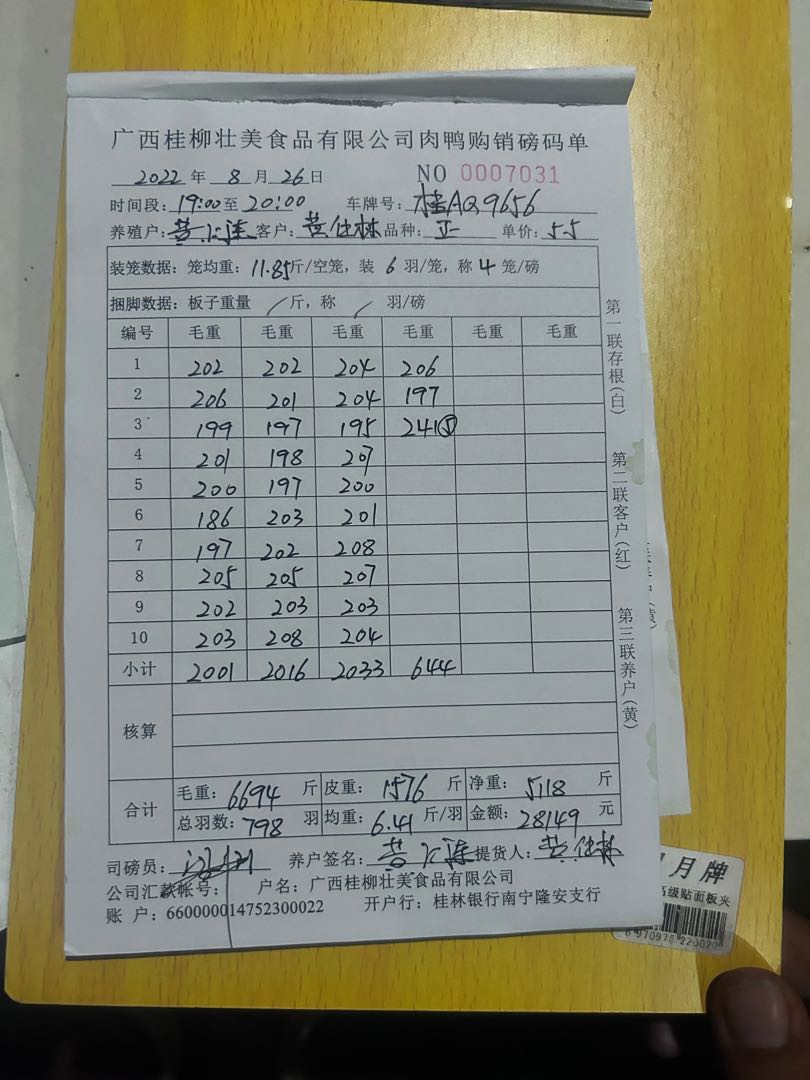 广西桂柳壮美食品有限公司肉鸭购销磅码单
2022 年 8 月 26 日 NO 0007031
时间段: 19:00 至 20:00 车牌号: 桂AQ9656
养殖户: 黄 客户: 黄仕林 品种: 正 单价: 5.5
装笼数据: 笼均重: 11.85 斤/空笼, 装 6 羽/笼, 称 4 笼/磅
捆脚数据: 板子重量 / 斤, 称 / 羽/磅
编号 毛重 毛重 毛重 毛重 毛重 毛重
1 202 202 204 206
2 206 201 204 197
3 199 197 195 241⑤
4 201 198 207
5 200 197 200
6 186 203 201
7 197 202 208
8 205 205 207
9 202 203 203
10 203 208 204
小计 2001 2016 2033 644
核算
合计 毛重: 6694 斤 皮重: 1576 斤 净重: 5118 斤
总羽数: 798 羽 均重: 6.41 斤/羽 金额: 28149 元
司磅员: 养户签名: 黄 提货人: 黄仕林
公司汇款帐号: 户名: 广西桂柳壮美食品有限公司
账 户: 660000014752300022 开户行: 桂林银行南宁隆安支行
第一联存根(白)
第二联客户(红)
第三联养户(黄)
月牌
高级贴面板夹
970978 220020